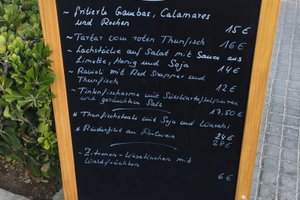 ~ fritierte Gambas, Calamares
und Rochen 15 €
~ Tartar vom roten Thunfisch 16 €
~ Lachsstücke auf Salat mit Sauce aus
Limette, Honig und Soja 14 €
~ Ravioli mit Red Snapper und
Thunfisch 12 €
~ mit Süsskartoffelpüree
und 17.50 €
* Thunfischsteak mit Soja und Wasabi
24 €
* Rinderfilet an Portwein
~ Zitronen-Käsekuchen mit
Waldfrüchten 6 €